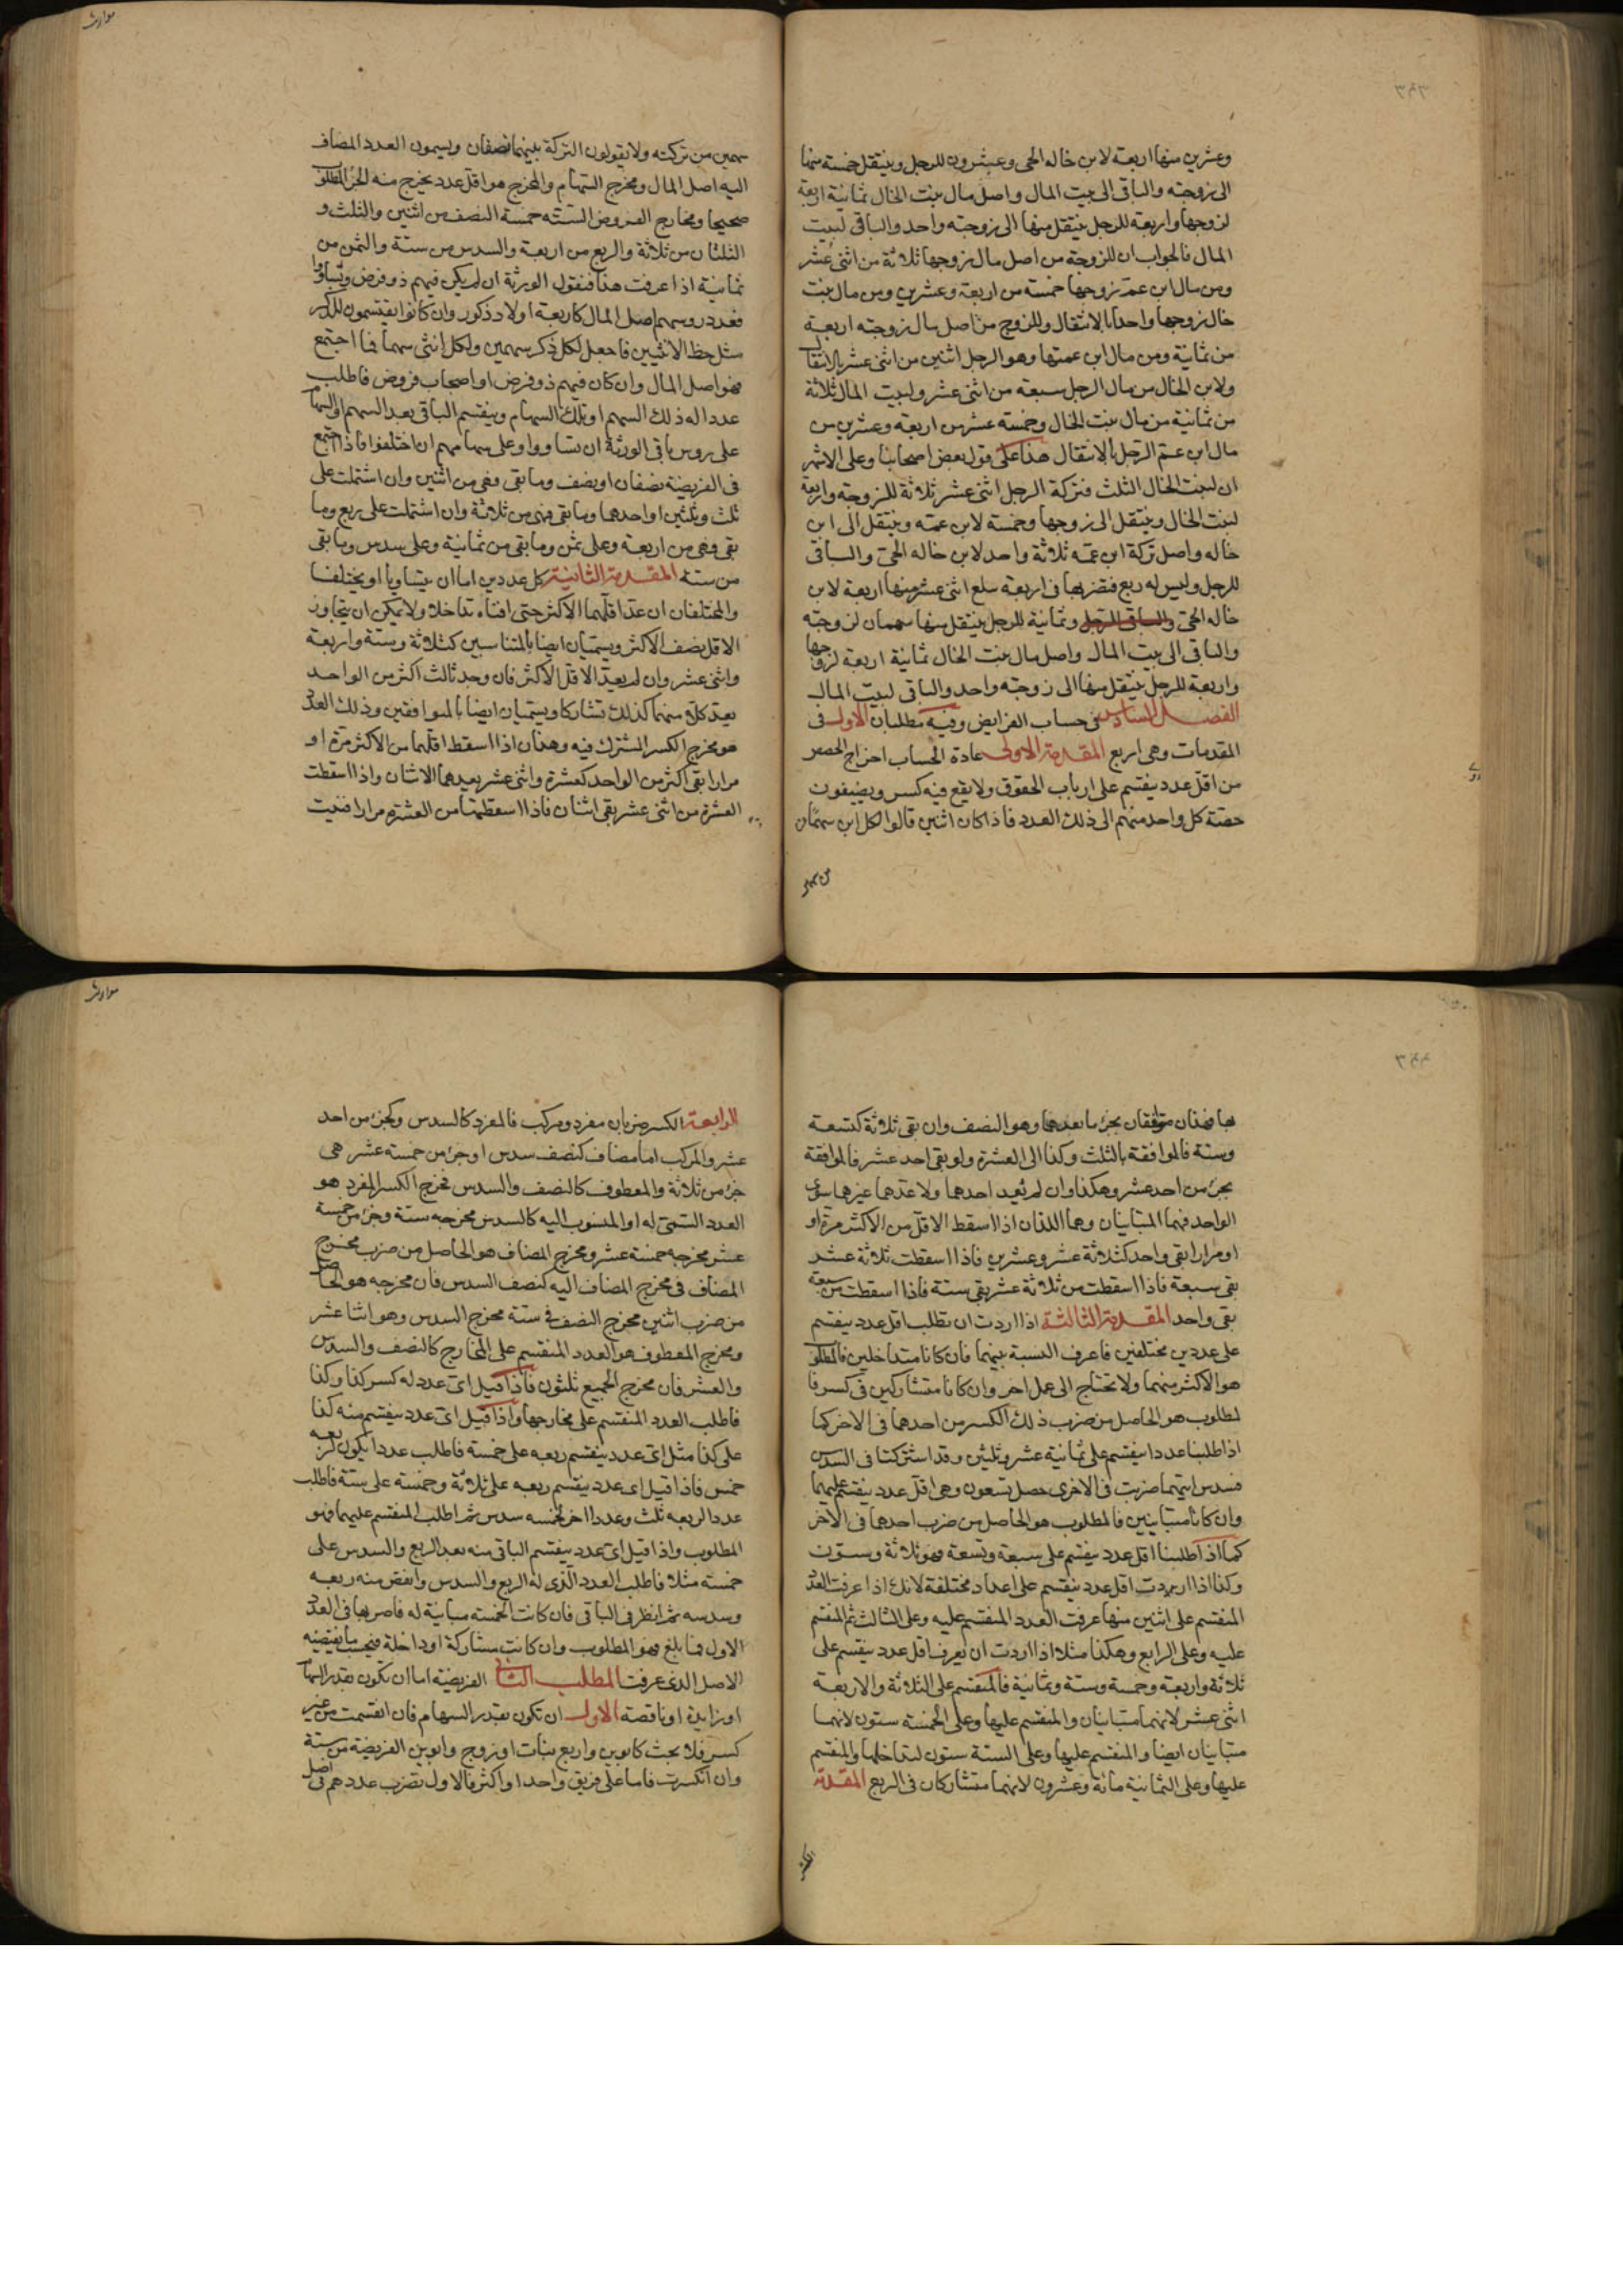 وعشرين منها اربعة لابن خاله الحى وعشرون للرجل وينتقل خمسة منها
الى زوجته والباقى الى بيت المال واصل مال بنت الخال ثمانية اربعة
لزوجها واربعة للرجل ينتقل منها الى زوجته واحد والباقى لبيت
المال فالجواب ان للزوجة من اصل مال زوجها ثلاثة من اثنى عشر
ومن مال ابن عم زوجها خمسة من اربعة وعشرين ومن مال بنت
خال زوجها واحدا بالانتقال وللزوج من اصل مال زوجته اربعة
من ثمانية ومن مال ابن عمتها وهو الرجل اثنين من اثنى عشر بالانتقال
ولابن الخال من مال الرجل سبعة من اثنى عشر ولبيت المال ثلاثة
من ثمانية من مال بنت الخال وخمسة عشر من اربعة وعشرين من
مال ابن عم الرجل بالانتقال هذا على قول بعض اصحابنا وعلى الاشهر
ان لبنت الخال الثلث فتركة الرجل اثنى عشر ثلاثة للزوجة واربعة
لبنت الخال وينتقل الى زوجها وخمسة لابن عمه وينتقل الى ابن
خاله واصل تركة ابن عمه ثلاثة واحد لابن خاله الحى والباقى
للرجل وليس له ربع فتضربها فى اربعة تبلغ اثنى عشر منها اربعة لابن
خاله الحى والباقى للرجل وثمانية للرجل ينتقل منها سهمان لزوجته
والباقى الى بيت المال واصل مال بنت الخال ثمانية اربعة لزوجها
واربعة للرجل ينتقل منها الى زوجته واحد والباقى لبيت المال
الفصل السادس فى حساب الفرايض وفيه مطلبان الاول فى
المقدمات وهى اربع المقدمة الاولى عادة الحساب اخراج الحصص
من اقل عدد ينقسم على ارباب الحقوق ولا يقع فيه كسر ويضيفون
حصة كل واحد منهم الى ذلك العدد فاذا كان اثنين قالوا لكل ابن سهمان
موارث
سهمين من تركته ولا يقولون التركة بينهما نصفان ويسمون العدد المضاف
اليه اصل المال ومخرج السهام والمخرج هو اقل عدد يخرج منه الجزء المطلوب
صحيحا ومخارج الفروض الستة خمسة النصف من اثنين والثلث و
الثلثان من ثلاثة والربع من اربعة والسدس من ستة والثمن من
ثمانية اذا عرفت هذا فنقول الورثة ان لم يكن فيهم ذو فرض وتساووا
فعدد روسهم اصل المال كاربعة اولاد ذكور وان كانوا يقتسمون للذكر
مثل حظ الانثيين فاجعل لكل ذكر سهمين ولكل انثى سهما فما اجتمع
فهو اصل المال وان كان فيهم ذو فرض او اصحاب فروض فاطلب
عددا له ذلك السهم او تلك السهام وينقسم الباقى بعد السهم او السهام
على روس باقى الورثة ان تساووا وعلى سهامهم ان اختلفوا فاذا اجتمع
فى الفريضة نصفان او نصف وما بقى فهى من اثنين وان اشتملت على
ثلث وثلثين او احدهما وما بقى فهى من ثلاثة وان اشتملت على ربع وما
بقى فهى من اربعة وعلى ثمن وما بقى من ثمانية وعلى سدس وما بقى
من ستة المقدمة الثانية كل عددين اما ان يتساويا او يختلفا
والمختلفان ان عد اقلهما الاكثر حتى افناه تداخلا ولا يمكن ان يتجاوز
الاقل نصف الاكثر ويسميان ايضا بالمتناسبين كثلاثة وستة واربعة
واثنى عشر وان لم يعد الاقل الاكثر فان وجد ثالث اكثر من الواحد
يعد كلا منهما كذلك تشاركا ويسميان ايضا بالمتوافقين وذلك العدد
هو مخرج الكسر المشترك فيه وهذان اذا اسقط اقلهما من الاكثر مرة او
مرارا بقى اكثر من الواحد كعشرة واثنى عشر يعدهما الاثنان واذا اسقطت
العشرة من اثنى عشر بقى اثنان فاذا اسقطتهما من العشرة مرارا فنيت
بها فهذان متوافقان بجزء ما يعدهما وهو النصف وان بقى ثلاثة كتسعة
وستة فالموافقة بالثلث وكذا الى العشرة ولو بقى احد عشر فالموافقة
بجزء من احد عشر وهكذا وان لم يعد احدهما ولا عدهما غيرهما سوى
الواحد فهما المتباينان وهما اللذان اذا اسقط الاقل من الاكثر مرة او
او مرارا بقى واحد كثلاثة عشر وعشرين فاذا اسقطت ثلاثة عشر
بقى سبعة فاذا اسقطت من ثلاثة عشر بقى ستة فاذا اسقطت من سبعة
بقى واحد المقدمة الثالثة اذا اردت ان تطلب اقل عدد ينقسم
على عددين مختلفين فاعرف النسبة بينهما فان كانا متداخلين فالمطلوب
هو الاكثر منهما ولا تحتاج الى عمل اخر وان كانا متشاركين فى كسر فا
لمطلوب هو الحاصل من ضرب ذلك الكسر من احدهما فى الاخر كما
اذا طلبنا عددا ينقسم على ثمانية عشر وثلثين وقد اشتركتا فى السدس
فسدس ايتهما ضربت فى الاخرى حصل تسعون وهى اقل عدد ينقسم عليهما
وان كانا متباينين فالمطلوب هو الحاصل من ضرب احدهما فى الاخر
كما اذا طلبنا اقل عدد ينقسم على سبعة وتسعة فهو ثلاثة وستون
وكذا اذا اردت اقل عدد ينقسم على اعداد مختلفة لانك اذا عرفت العدد
المنقسم على اثنين منها عرفت العدد المنقسم عليه وعلى الثالث ثم المنقسم
عليه وعلى الرابع وهكذا مثلا اذا اردت ان تعرف اقل عدد ينقسم على
ثلاثة واربعة وخمسة وستة وثمانية فالمنقسم على الثلاثة والاربعة
اثنى عشر لانهما متباينان والمنقسم عليها وعلى الخمسة ستون لانهما
متباينان ايضا والمنقسم عليها وعلى الستة ستون لتداخلها والمنقسم
عليها وعلى الثمانية مائة وعشرون لانهما متشاركان فى الربع المقدمة
موارث
الرابعة الكسر ضربان مفرد ومركب فالمفرد كالسدس وكجزء من احد
عشر والمركب اما مضاف كنصف سدس او جزء من خمسة عشر هى
جزء من ثلاثة والمعطوف كالنصف والسدس فمخرج الكسر المفرد هو
العدد السمى له او المنسوب اليه كالسدس مخرجه ستة وجزء من خمسة
عشر مخرجه خمسة عشر ومخرج المضاف هو الحاصل من ضرب مخرج
المضاف فى مخرج المضاف اليه كنصف السدس فان مخرجه هو الحاصل
من ضرب اثنين مخرج النصف فى ستة مخرج السدس وهو اثنا عشر
ومخرج المعطوف هو العدد المنقسم على المخارج كالنصف والسدس
والعشر فان مخرج الجميع ثلثون فاذا قيل اى عدد له كسر كذا وكذا
فاطلب العدد المنقسم على مخارجها واذا قيل اى عدد ينقسم منه كذا
على كذا مثل اى عدد ينقسم ربعه على خمسة فاطلب عددا يكون لربعه
خمس فاذا قيل اى عدد ينقسم ربعه على ثلاثة وخمسه على ستة فاطلب
عددا لربعه ثلث وعددا اخر لخمسه سدس ثم اطلب المنقسم عليهما فهو
المطلوب واذا قيل اى عدد ينقسم الباقى منه بعد الربع والسدس على
خمسة مثلا فاطلب العدد الذى له الربع والسدس وانقص منه ربعه
وسدسه ثم انظر فى الباقى فان كانت الخمسة مباينة له فاضربها فى العدد
الاول فما بلغ فهو المطلوب وان كانت مشاركة او داخلة فبحسب ما يقتضيه
الاصل الذى عرفت المطلب الثانى الفريضة اما ان تكون بقدر السهام
او زايدة او ناقصة الاول ان تكون بقدر السهام فان انقسمت من غير
كسر فلا بحث كابوين واربع بنات او زوج وابوين الفريضة من ستة
وان انكسرت فاما على فريق واحد او اكثر فالاول تضرب عددهم فى اصل